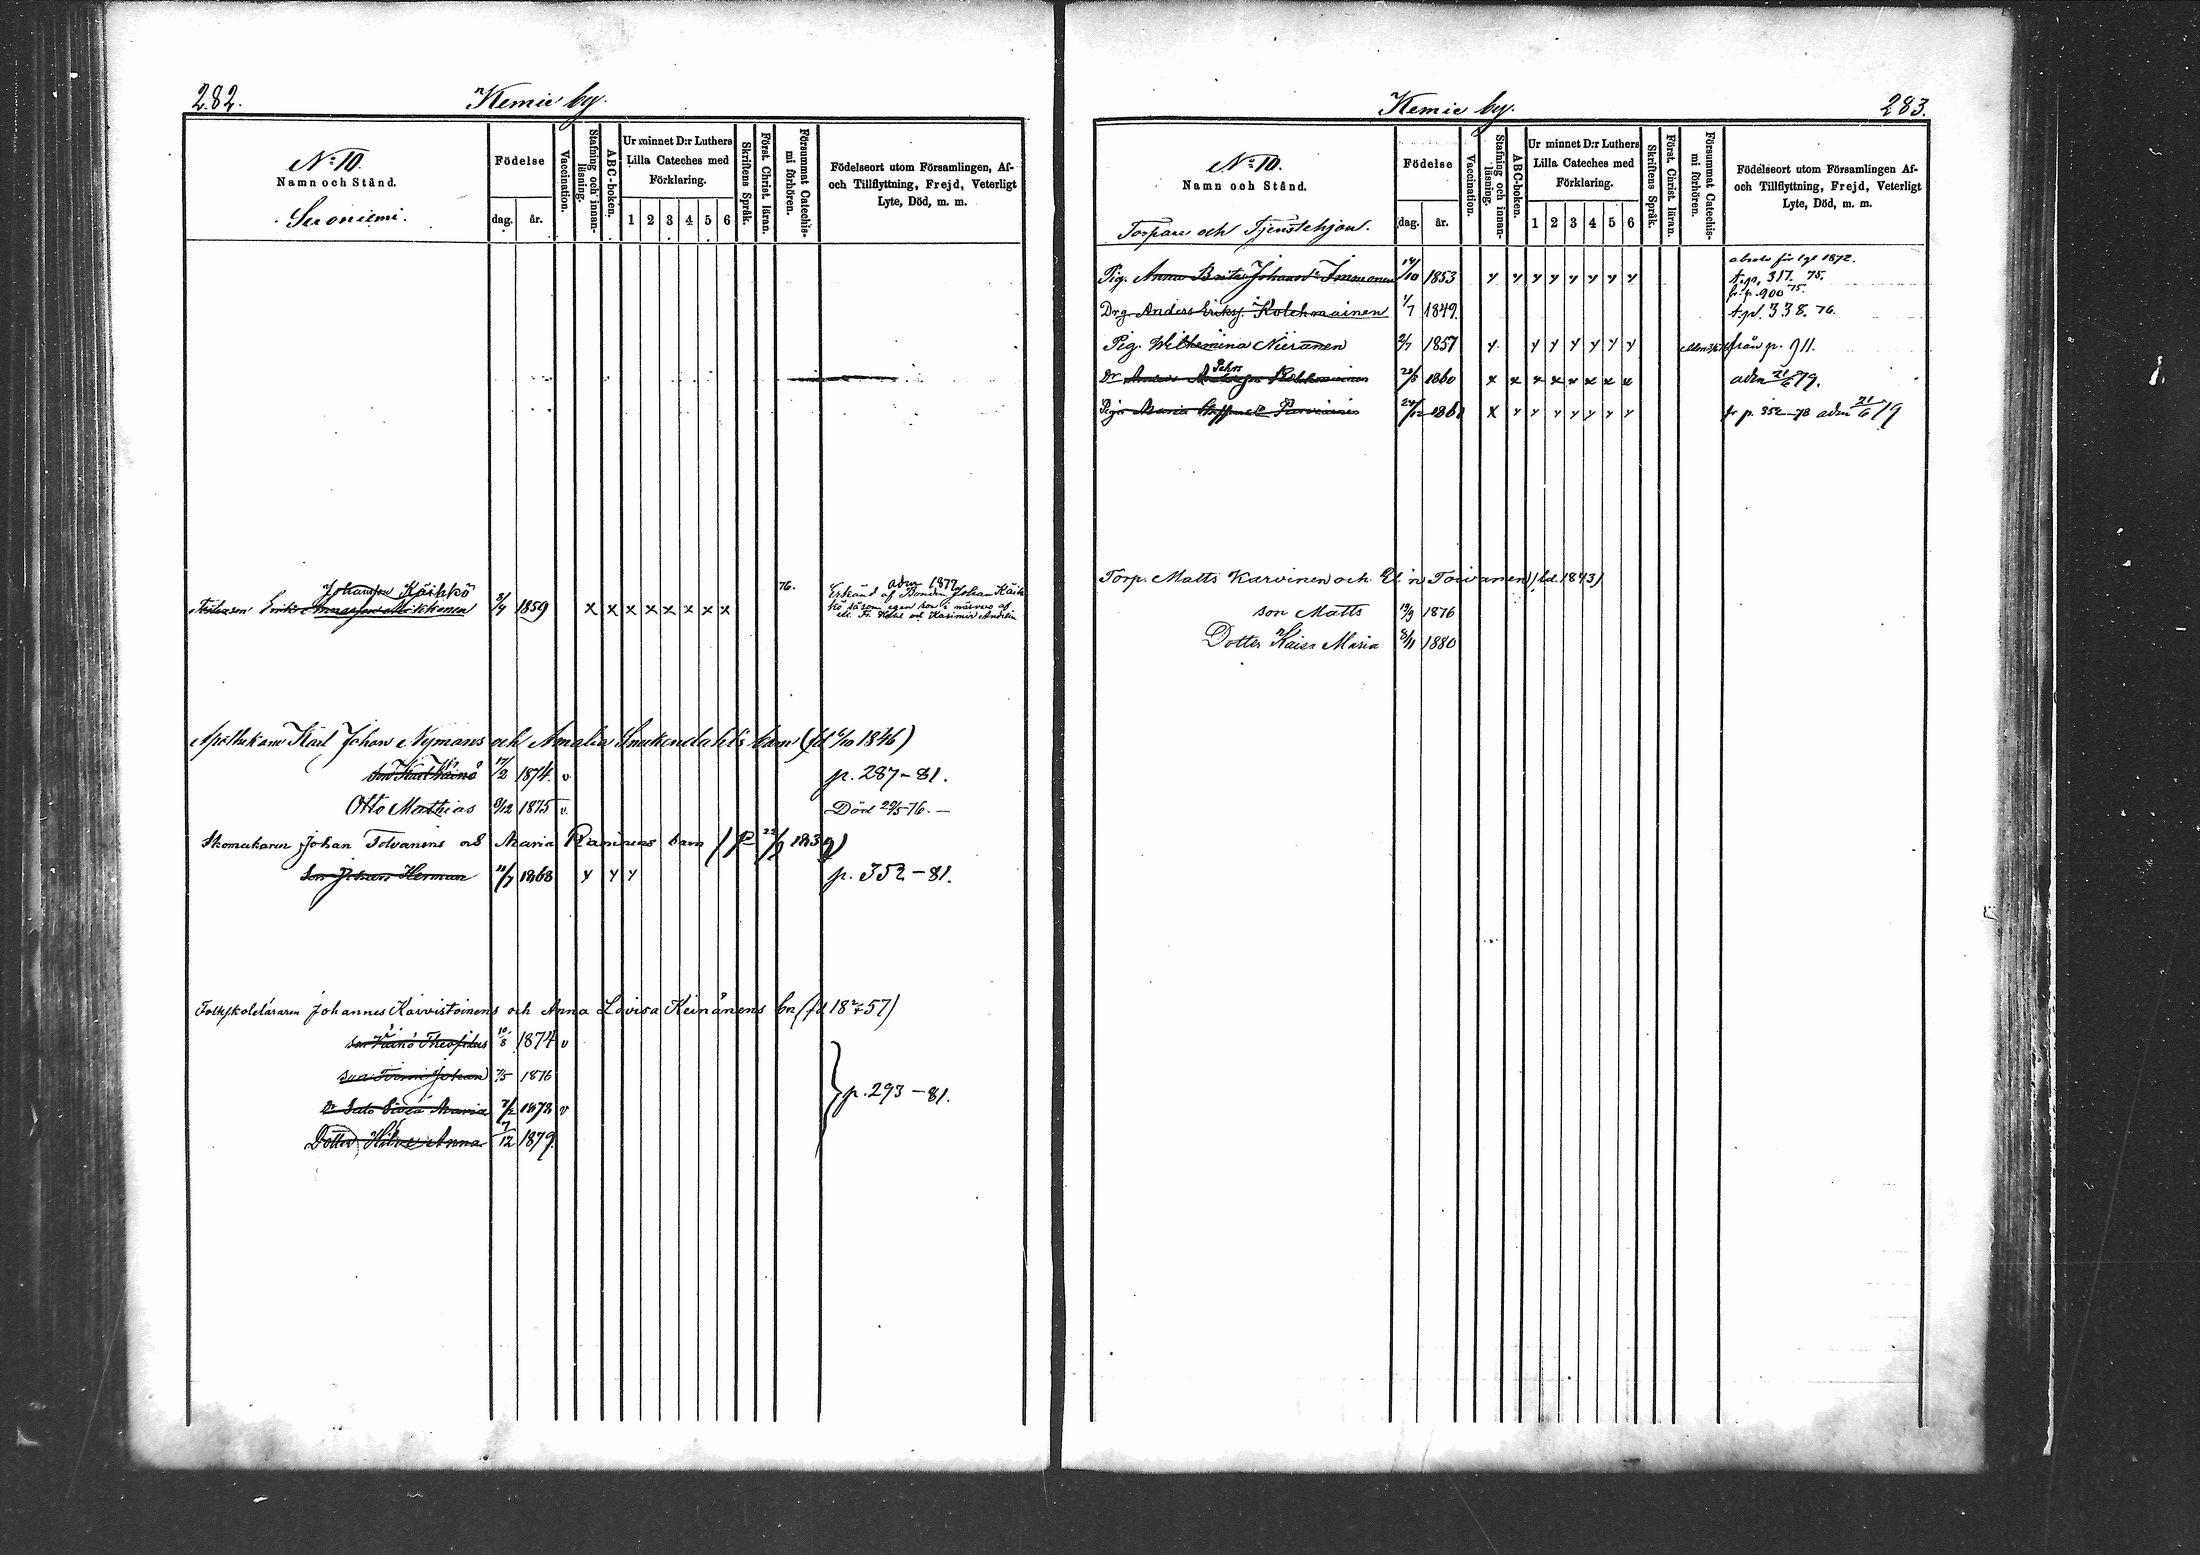 282.
Kemie by.
No 10.
Namn och Stånd.
Födelse
dag. år.
Vaccination.
Stafning och innanläsning.
ABC-boken.
Ur minnet D:r Luthers
Lilla Cateches med
Förklaring.
1 2 3 4 5 6
Skriftens Språk.
Först. Christ. läran.
Försummat Catechismi förhören.
Födelseort utom Församlingen, Af-
och Tillflyttning, Frejd, Veterligt
Lyte, Död, m. m.
Johansson Käihkö
Erik Mikkonen 1859 x x x x x x x x 76.
adm 1877
Erkänd af Bonden Johan Käih
kö såsom egen son i närvaro af
och Kasimir
Apothekare Karl Johan Nymans och Amalia barn (fd 6/10 1846)
son Karl Väinö 17/2 1874. v p. 287-81.
Otto Mathias 9/12 1875 v. Död 29/5-76.
Skomakaren Johan Tolvanens och Maria barn
son Johan Herman 11/7 1868 y y y p. 352-81.
Folkskoleläraren Johannes Koivistoinens och Anna Lovisa Keinänens bn (fd 18 57)
son Väinö Theofilus 10/8 1874 v
son Toivo Johan 7/5 1876
Maria 7/2 1872 v
p. 293-81.
Dotter Anna 7/12 1879.
Kemie by.
283.
No 10.
Namn och Stånd.
Torpare och Tjenstehjon.
Födelse
dag. år.
Vaccination.
Stafning och innanläsning.
ABC-boken.
Ur minnet D:r Luthers
Lilla Cateches med
Förklaring.
1 2 3 4 5 6
Skriftens Språk.
Först. Christ. läran.
Försummat Catechismi förhören.
Födelseort utom Församlingen Af-
och Tillflyttning, Frejd, Veterligt
Lyte, Död, m. m.
Pig. Anna Brita Johansdr Immonen 14/10 1853 y y y y y y y y
1872.
t. p. 317. 75.
fr. p. 900 75.
Drg Anders Eriks. Kolehmainen 1/7 1849. t. p. 338. 76.
Pig. Wilhemina Niiranen 2/7 1857 y y y y y y y från p. 911.
Dr 1860 x x x x x x x x adm 21/6 79.
Piga Maria Parviainen 24/12 y y y y y y y fr p. 352-78 adm 21/6 79
Torp. Matts Karvinen och Toivanen 1843)
son Matts 19/9 1876
Dotter Kaisa Maria 8/11 1880